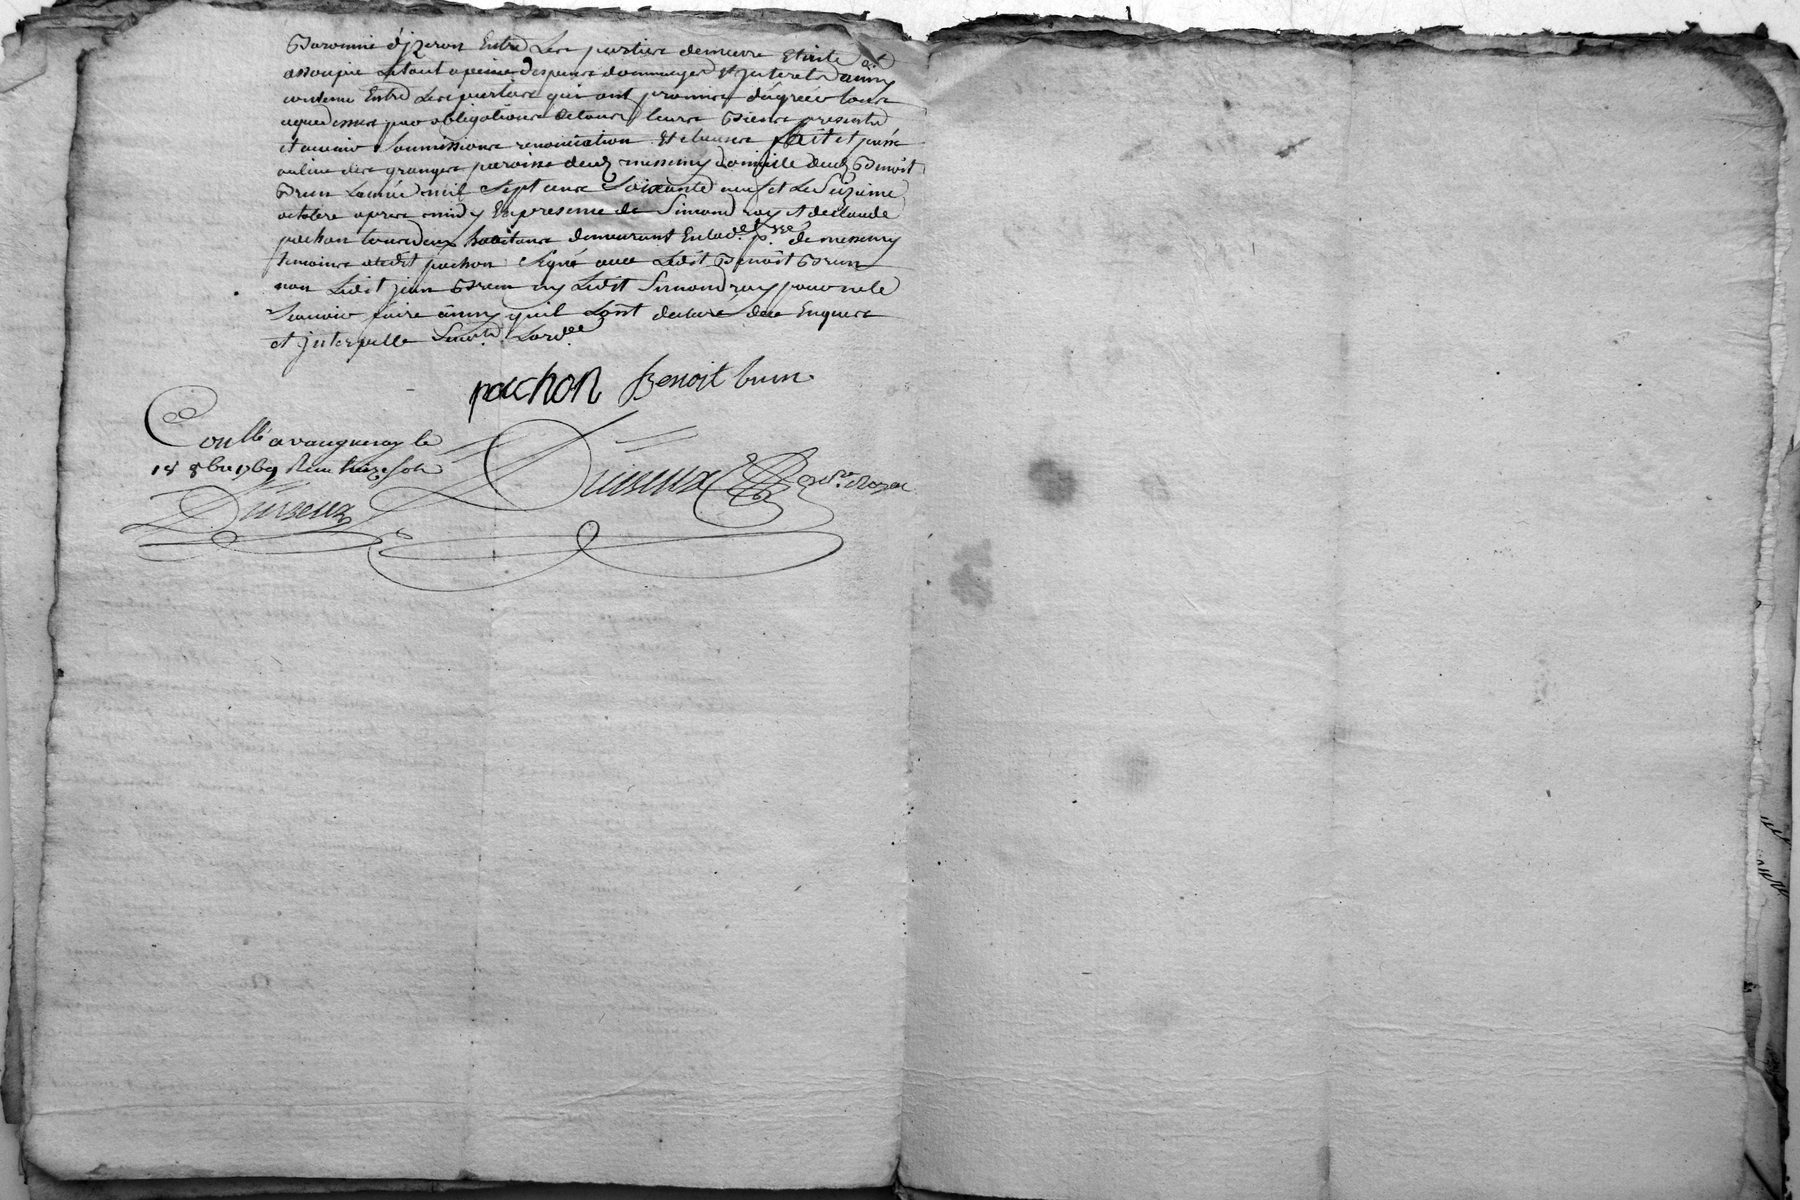 Baronnie d'jzeron Entre Les parties demeure Eteinte et
assoupie Letout apeine de depens dommages Et jnterets ainsy
convenu Entre Les parties qui ont promis d'agréer tout
cequedessus par obligations detous leurs Biens presents
et avenir soumissions renonciation Et clauses fait et passé
aulieu des granges paroisse dud. messimy domicille dud. Benoit
Brun Lannée mil sept cens soixante neuf et Le Seizieme
octobre apres midy En presence de Simond roy et de claude
pachon tous deux habitans demeurant Enlad. p.sse de messimy
temoins Ledit pachon signé avec Ledit Benoit Brun
non Ledit jean Brun ny Ledit Simond roy pour nele
scavoir faire ainsy quil Lont declaré de ce Enquis
et jnterpellé
pachon Benoit brun
Conllé a vaugneray le
18 8bre 1769 Reçu treize sols